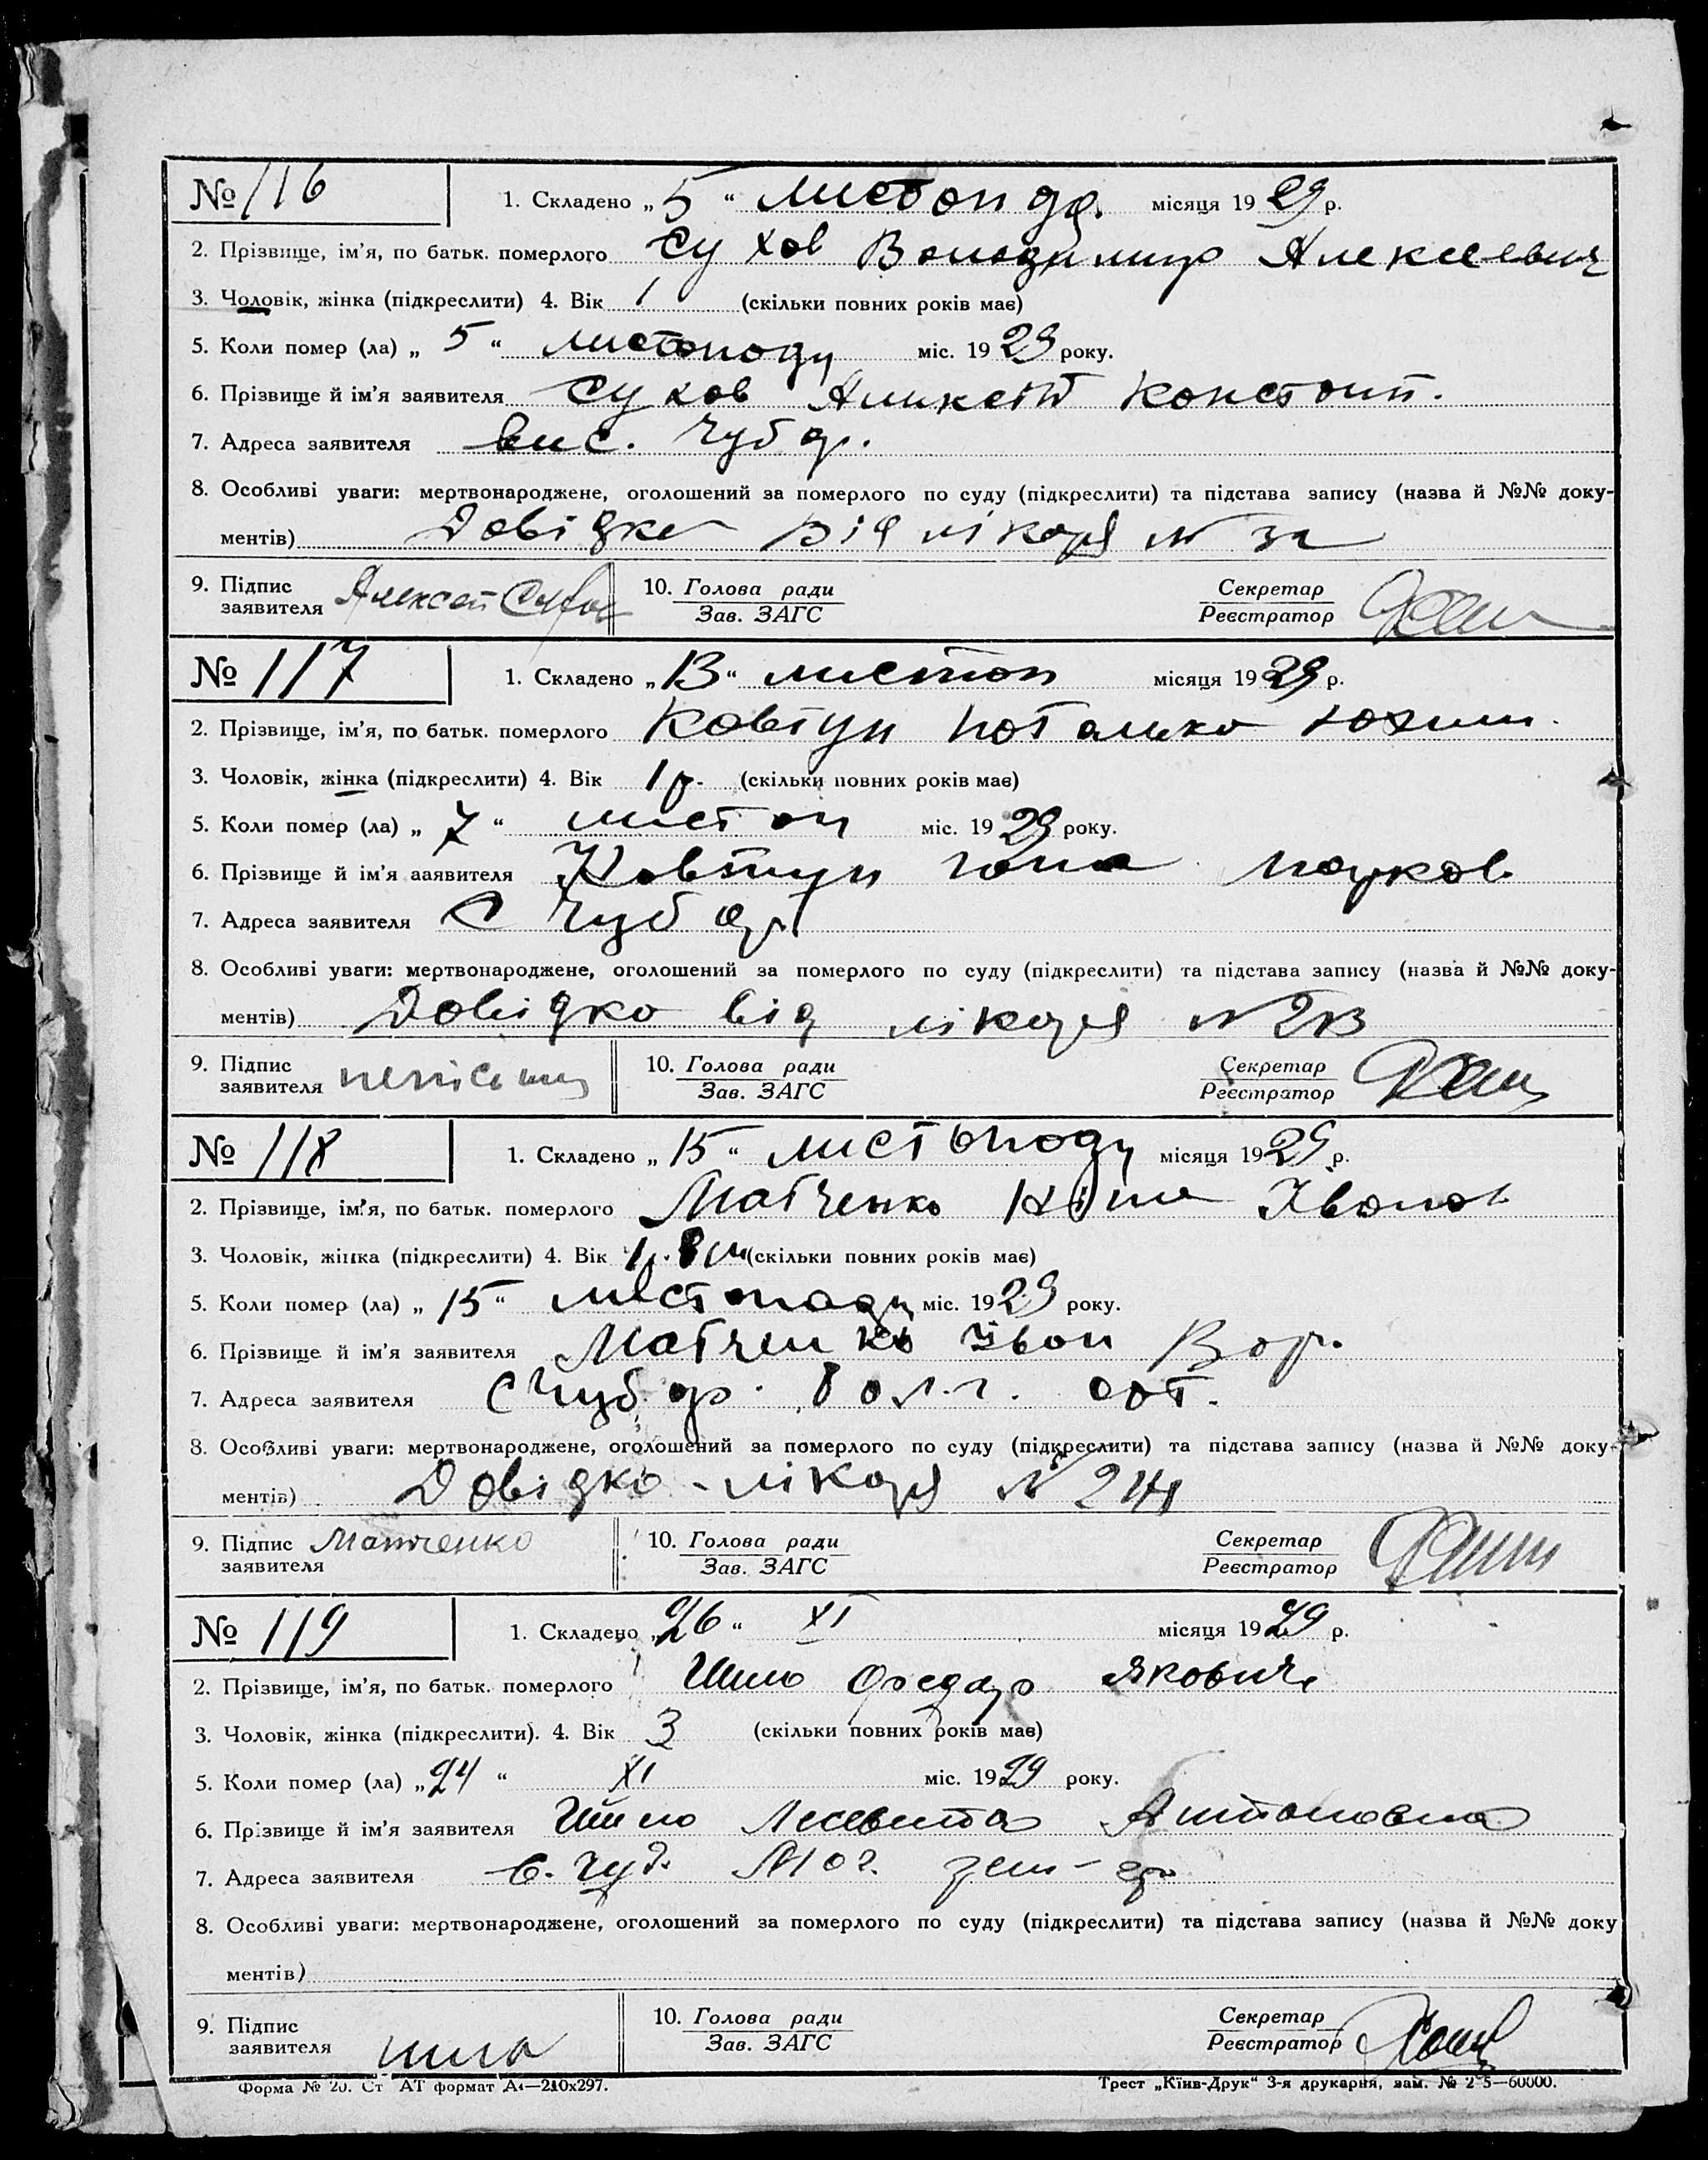 № 116 1. Складено „5“ листопада місяця 1929 р.
2. Прізвище, ім'я, по батьк. померлого Сухов Володимир Алексеевич
3. Чоловік, жінка (підкреслити) 4. Вік 1 (скільки повних років має)
5. Коли помер (ла) „5“ листопаду міс. 1929 року.
6. Прізвище й ім'я заявителя Сухов Констант.
7. Адреса заявителя вис. Чубар.
8. Особливі уваги: мертвонароджене, оголошений за померлого по суду (підкреслити) та підстава запису (назва й №№ доку-
ментів) Довідка від лікаря №
9. Підпис 10. Голова ради Секретар
заявителя Алексей Сухов Зав. ЗАГС Реєстратор
№ 117 1. Складено „13“ листоп місяця 1929 р.
2. Прізвище, ім'я, по батьк. померлого Ковтун Наталка Юхим.
3. Чоловік, жінка (підкреслити) 4. Вік 1 р. (скільки повних років має)
5. Коли помер (ла) „7“ листоп міс. 1929 року.
6. Прізвище й ім'я заявителя Ковтун
7. Адреса заявителя С Чубар
8. Особливі уваги: мертвонароджене, оголошений за померлого по суду (підкреслити) та підстава запису (назва й №№ доку-
ментів) Довідка від лікаря № 213
9. Підпис 10. Голова ради Секретар
заявителя неписьмен Зав. ЗАГС Реєстратор
№ 118 1. Складено „15“ листопаду місяця 1929 р.
2. Прізвище, ім'я, по батьк. померлого Матченко Ніна Іванов
3. Чоловік, жінка (підкреслити) 4. Вік 1 р. 8 м (скільки повних років має)
5. Коли помер (ла) „15“ листопаду міс. 1929 року.
6. Прізвище й ім'я заявителя Матченко Іван
7. Адреса заявителя С Чубар.
8. Особливі уваги: мертвонароджене, оголошений за померлого по суду (підкреслити) та підстава запису (назва й №№ доку-
ментів) Довідка лікаря № 214
9. Підпис Матченко 10. Голова ради Секретар
заявителя Зав. ЗАГС Реєстратор
№ 119 1. Складено „26“ XI місяця 1929 р.
2. Прізвище, ім'я, по батьк. померлого Шило Федор Якович
3. Чоловік, жінка (підкреслити). 4. Вік 3 (скільки повних років має)
5. Коли помер (ла) „24“ XI міс. 1929 року.
6. Прізвище й ім'я заявителя Шило Антоновна
7. Адреса заявителя с. Чуб.
8. Особливі уваги: мертвонароджене, оголошений за померлого по суду (підкреслити) та підстава запису (назва й №№ доку
ментів)
9. Підпис 10. Голова ради Секретар
заявителя шило Зав. ЗАГС Реєстратор
Форма № 20. Ст АТ формат А4—210х297. Трест „Київ-Друк“ 3-я друкарня, зам. №